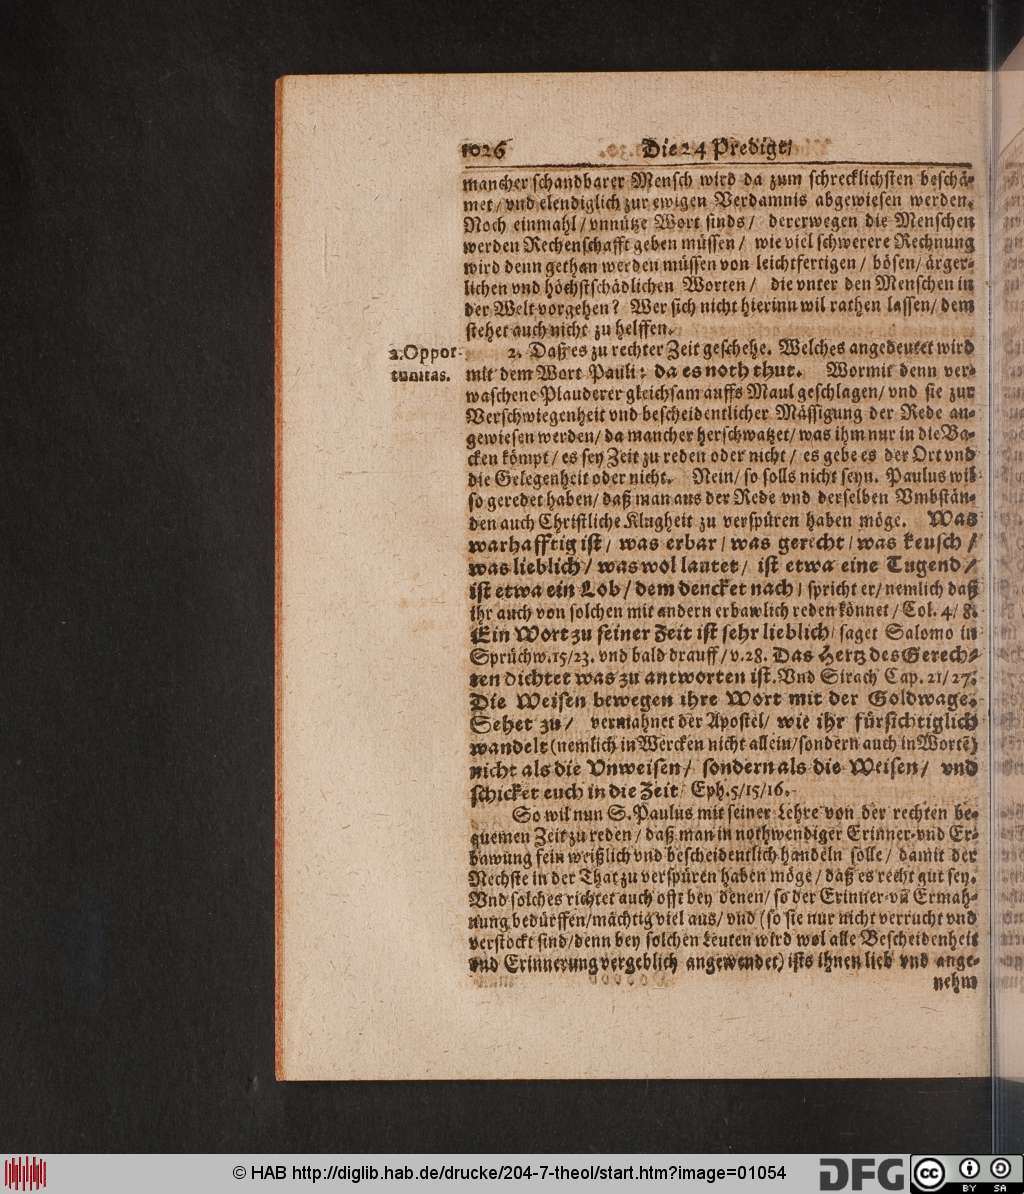 1026 Die 24 Predigt/
mancher schandbarer Mensch wird da zum schrecklichsten beschä-
met/ vnd elendiglich zur ewigen Verdamnis abgewiesen werden.
Noch einmahl/ vnnütze Wort sinds/ dererwegen die Menschen
werden Rechenschafft geben müssen/ wie viel schwerere Rechnung
wird denn gethan werden müssen von leichtfertigen/ bösen/ ärger-
lichen vnd höchstschädlichen Worten/ die vnter den Menschen in
der Welt vorgehen? Wer sich nicht hierinn wil rathen lassen/ dem
stehet auch nicht zu helffen.
2. Oppor-
tunitas.
2. Daß es zu rechter Zeit geschehe. Welches angedeutet wird
mit dem Wort Pauli: da es noth thut. Wormit denn ver-
waschene Plauderer gleichsam auffs Maul geschlagen/ vnd sie zur
Verschwiegenheit vnd bescheidentlicher Mässigung der Rede an-
gewiesen werden/ da mancher herschwatzet/ was ihm nur in die Ba-
cken kömpt/ es sey Zeit zu reden oder nicht/ es gebe es der Ort vnd
die Gelegenheit oder nicht. Nein/ so solls nicht seyn. Paulus wil
so geredet haben/ daß man aus der Rede vnd derselben Vmbstän-
den auch Christliche Klugheit zu verspüren haben möge. Was
warhafftig ist/ was erbar/ was gerecht/ was keusch/
was lieblich/ was wol lautet/ ist etwa eine Tugend/
ist etwa ein Lob/ dem dencket nach/ spricht er/ nemlich daß
ihr auch von solchen mit andern erbawlich reden könnet/ Col. 4/ 8.
Ein Wort zu seiner Zeit ist sehr lieblich/ saget Salomo in
Sprüchw. 15/ 23. vnd bald drauff/ v. 28. Das Hertz des Gerech-
ten dichtet was zu antworten ist. Vnd Sirach Cap. 21/ 27.
Die Weisen bewegen ihre Wort mit der Goldwage.
Sehet zu/ vermahnet der Apostel/ wie ihr fürsichtiglich
wandelt (nemlich in Wercken nicht allein/ sondern auch in Wortē)
nicht als die Vnweisen/ sondern als die Weisen/ vnd
schicket euch in die Zeit/ Eph. 5/ 15/ 16.
So wil nun S. Paulus mit seiner Lehre von der rechten be-
quemen Zeit zu reden/ daß man in nothwendiger Erinner- vnd Er-
bawung fein weißlich vnd bescheidentlich handeln solle/ damit der
Nechste in der That zu verspüren haben möge/ daß es recht gut sey.
Vnd solches richtet auch offt bey denen/ so der Erinner- vn̄ Ermah-
nung bedürffen/ mächtig viel aus/ vnd (so sie nur nicht verrucht vnd
verstockt sind/ denn bey solchen Leuten wird wol alle Bescheidenheit
vnd Erinnerung vergeblich angewendet) ists ihnen lieb vnd ange-
nehm
© HAB http://diglib.hab.de/drucke/204-7-theol/start.htm?image=01054
DFG
cc BY SA